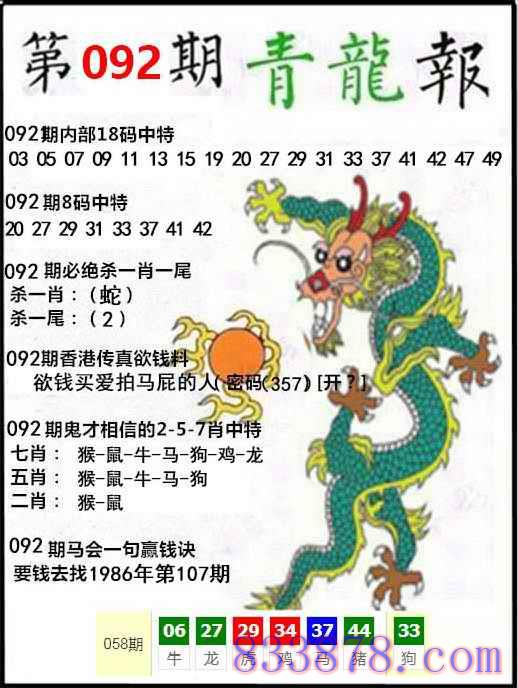 第092期青龍報
092期内部18码中特
03 05 07 09 11 13 15 19 20 27 29 31 33 37 41 42 47 49
092期8码中特
20 27 29 31 33 37 41 42
092期必绝杀一肖一尾
杀一肖：（蛇）
杀一尾：（2）
092期香港传真欲钱料
欲钱买爱拍马屁的人(密码(357)[开?]
092期鬼才相信的2-5-7肖中特
七肖： 猴-鼠-牛-马-狗-鸡-龙
五肖： 猴-鼠-牛-马-狗
二肖： 猴-鼠
092期马会一句赢钱诀
要钱去找1986年第107期
058期 06 27 29 34 37 44 33
牛 龙 虎 鸡 马 猪 狗
833878.com